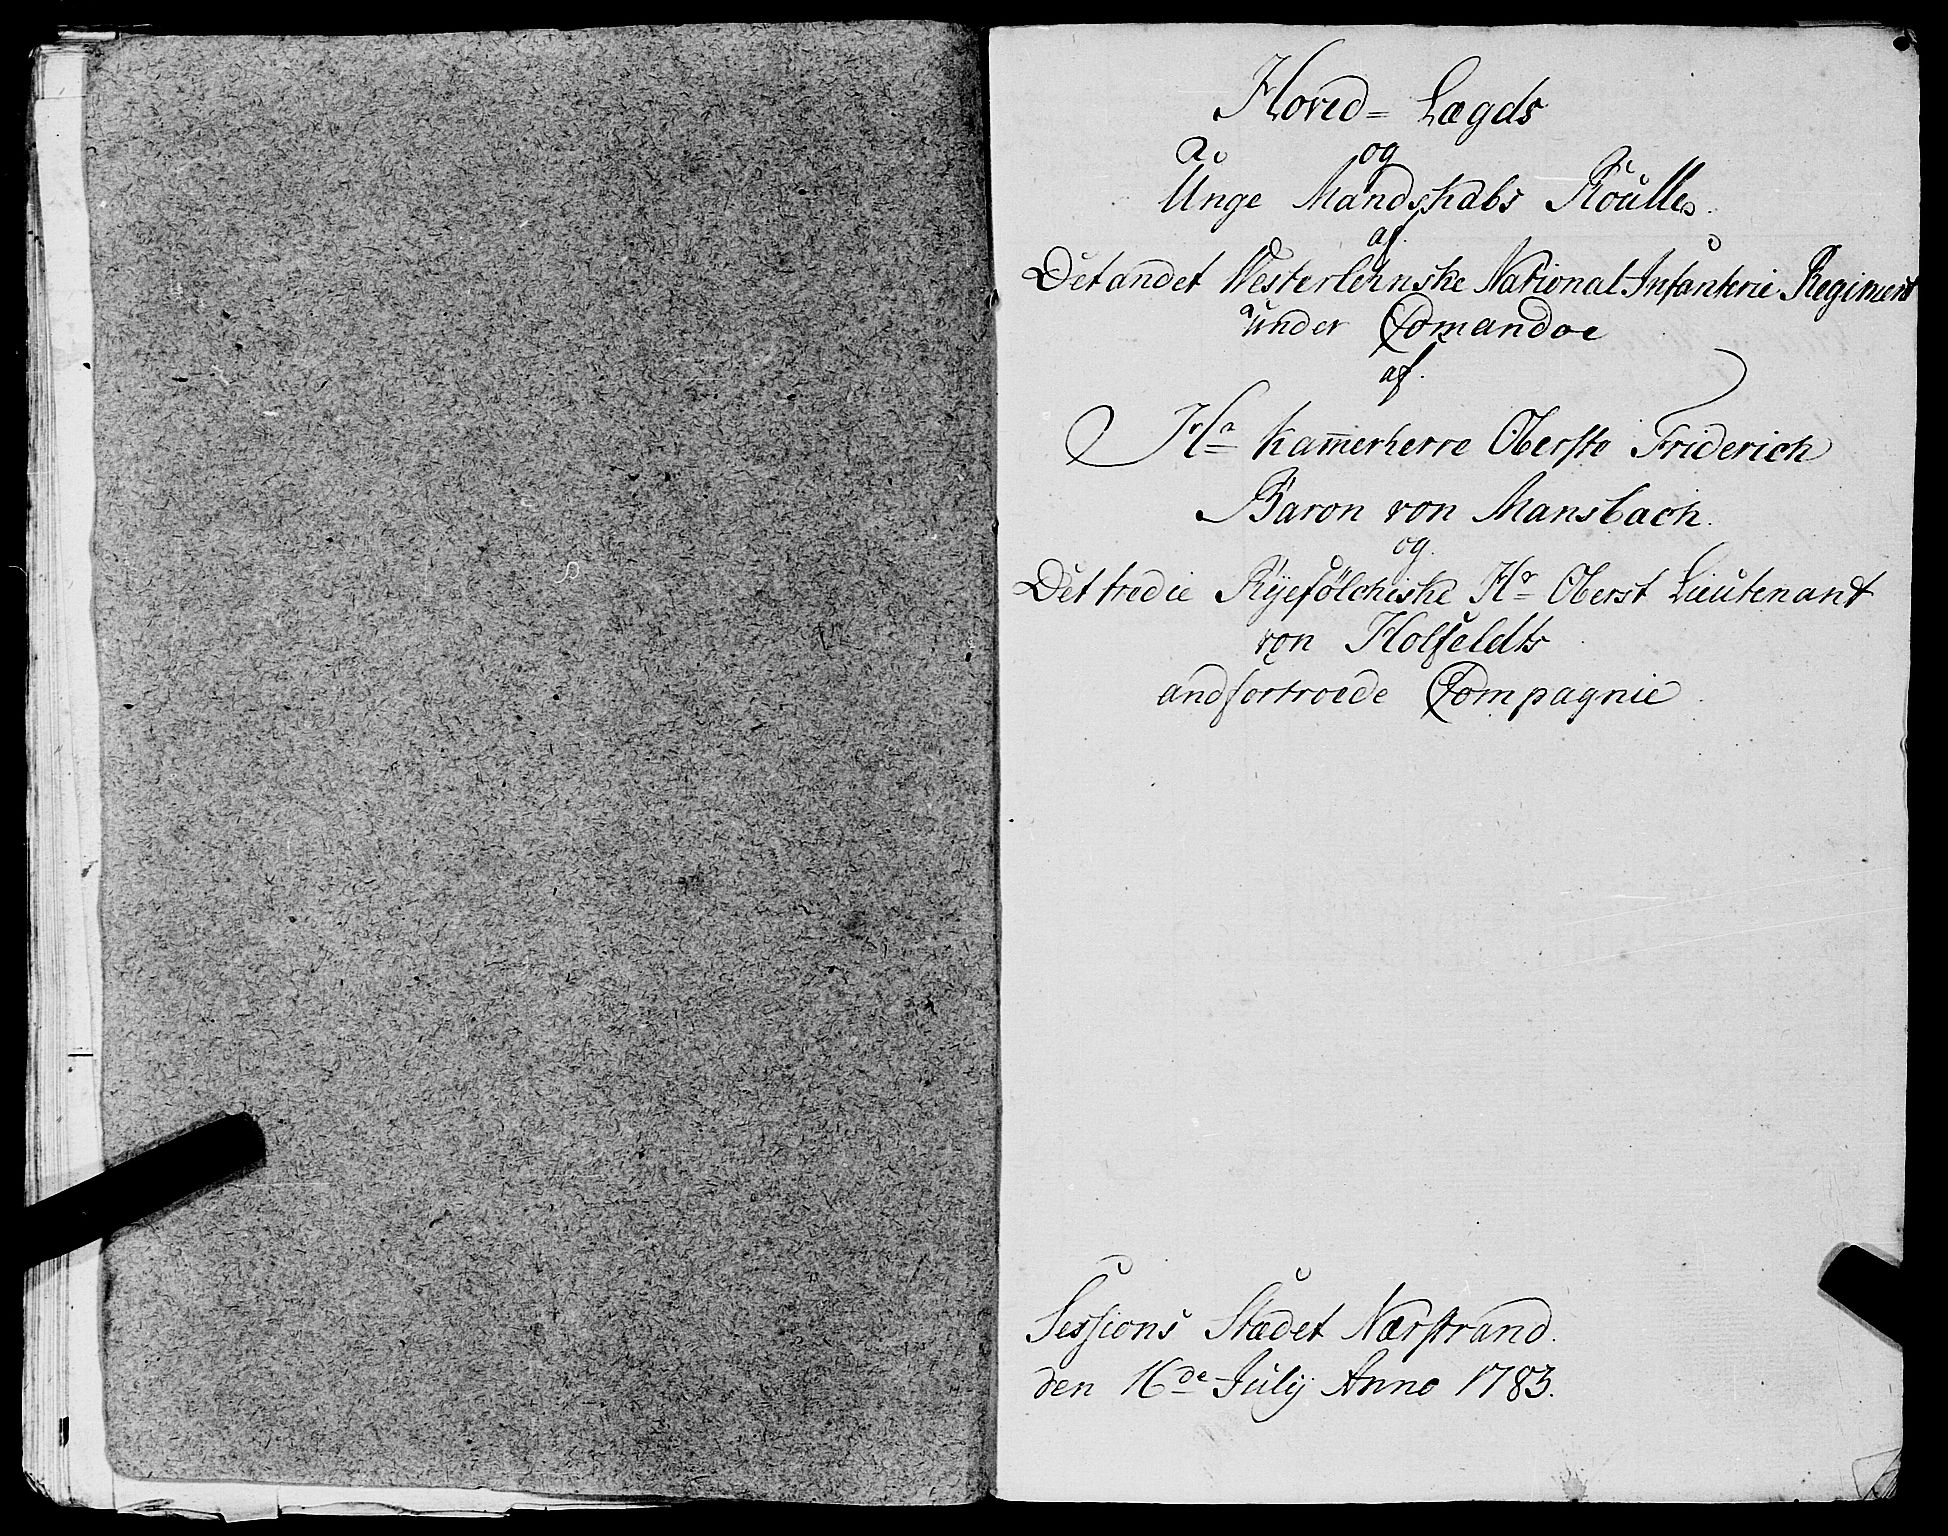 Hoved= Lægds
og
Unge Mandskabs Roulle
af
Det andet Westerlehnske National Infanterie Regiment
under Comandoe
af.
Hr Kam̄erherre Oberste Friderich
Baron von Mansbach.
og
Det tredie Ryefølchiske Hr Oberst Lieutenant
von Holfeldts
andfortroede Compagnie
Sessions Stædet Nærstrand.
den 16de July Anno 1783.